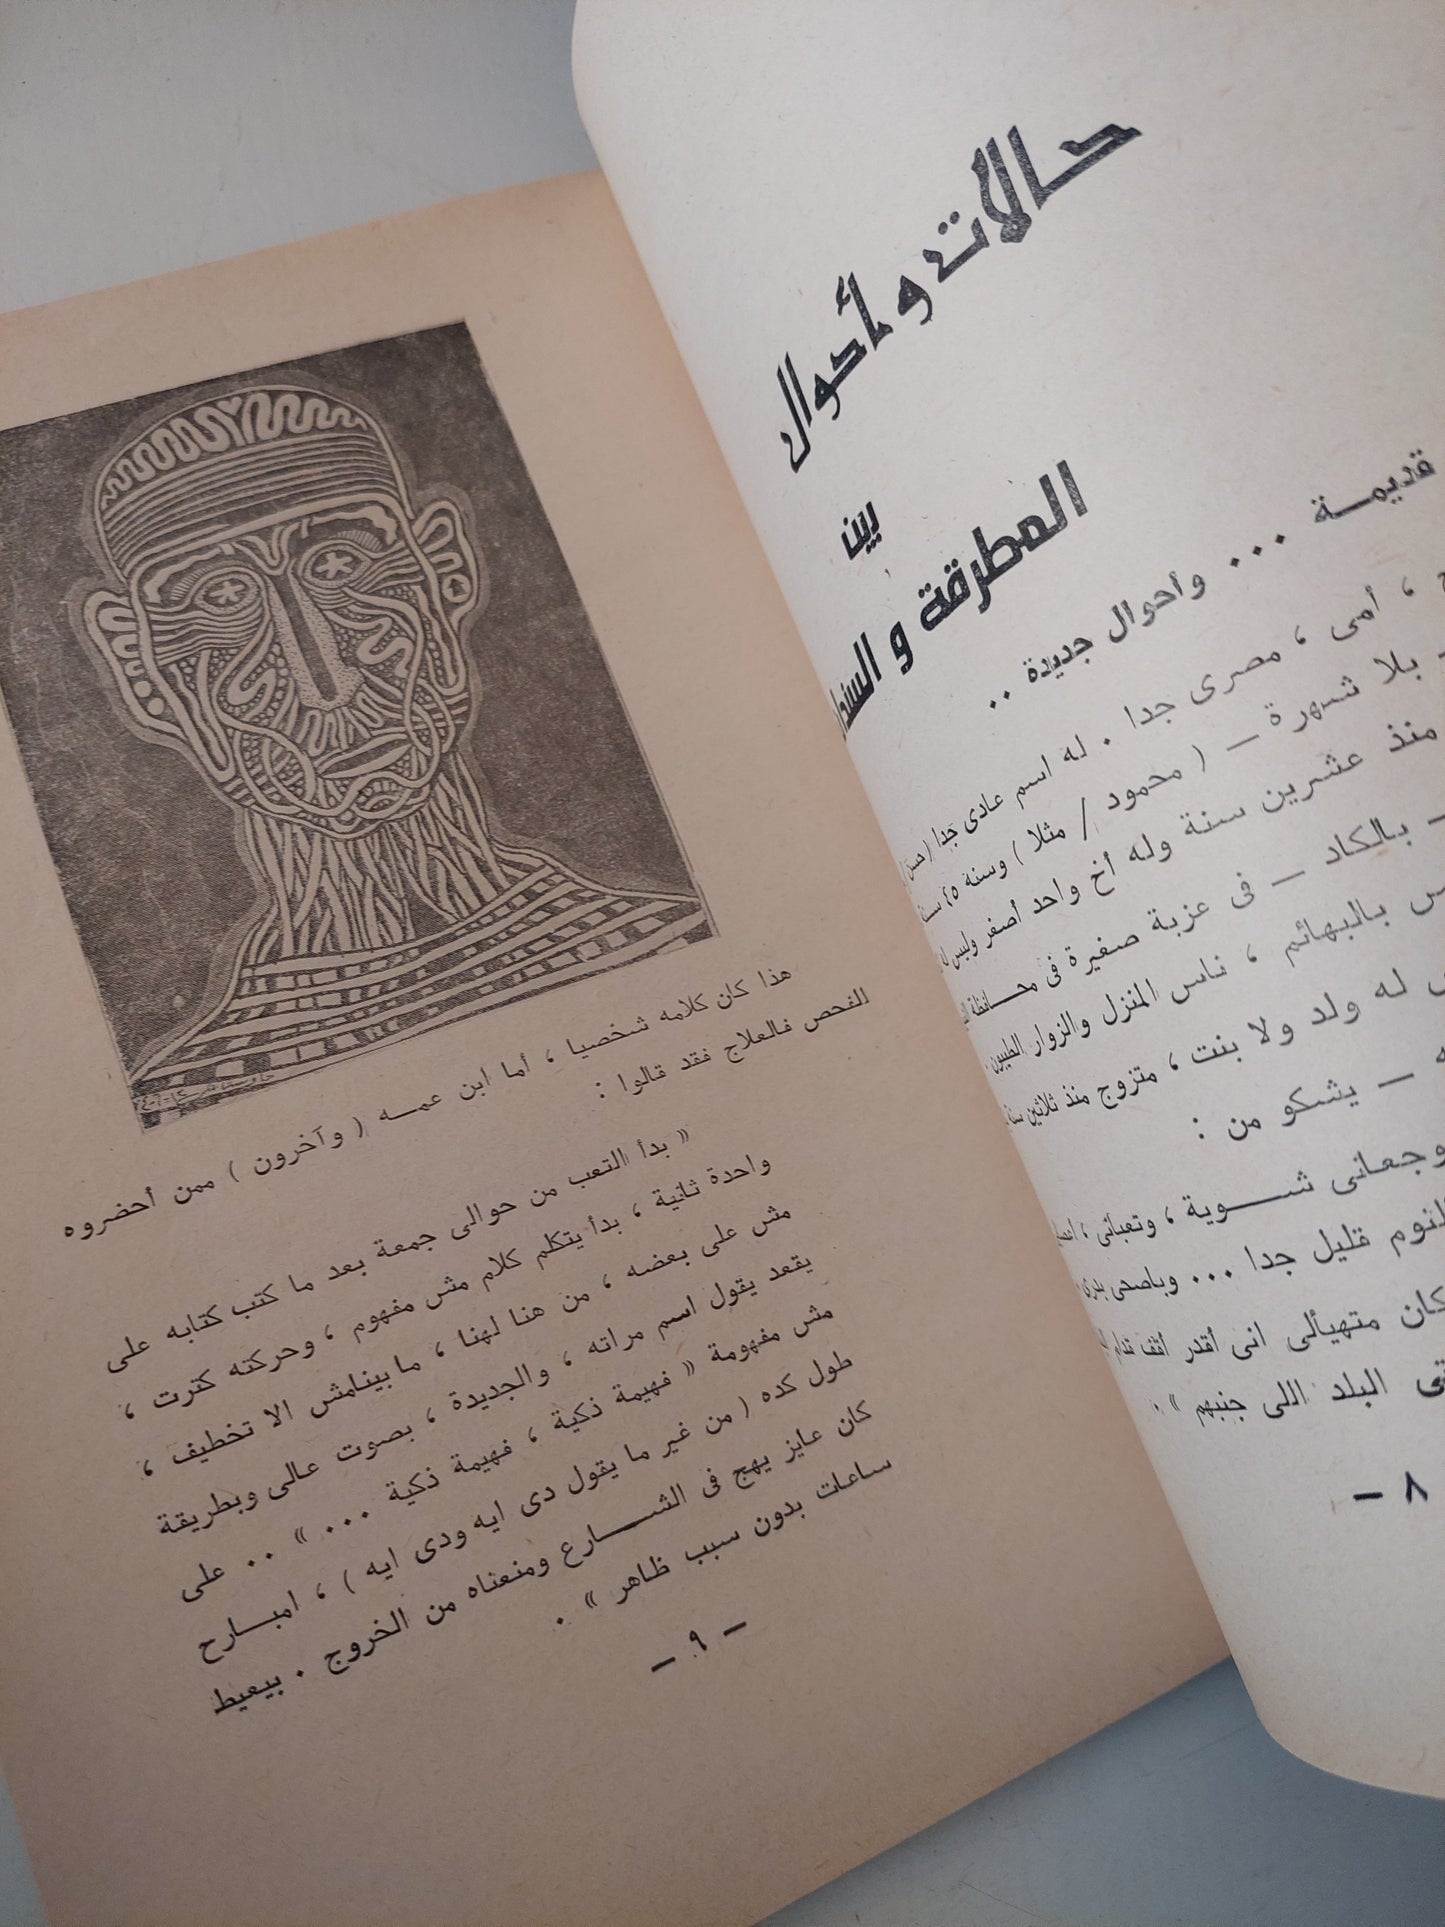 حالات وأحوال
بين
المطرقة والسندا
قديمة ... وأحوال جديدة ..
، أمى ، مصرى جدا . له اسم عادى جدا ( حسن
بلا شهرة – ( محمود / مثلا ) وسنة ٤٥ سنة
منذ عشرين سنة وله أخ واحد أصغر وليس له
– بالكاد – فى عزبة صغيرة فى محافظة
بالبهائم ، ناس المنزل والزوار الطيبون
له ولد ولا بنت ، متزوج منذ ثلاثين سنة
– يشكو من :
وجعانى شوية ، وتعبانى ،
النوم قليل جدا ... وباصحى بدرى
كان متهيألى انى أقدر أقف قدام
البلد اللى جنبهم » .
٨ –
هذا كان كلامه شخصيا ، أما ابن عمه ( وآخرون ) ممن أحضروه
للفحص فالعلاج فقد قالوا :
« بدأ التعب من حوالى جمعة بعد ما كتب كتابه على
واحدة ثانية ، بدأ يتكلم كلام مش مفهوم ، وحركته كترت ،
مش على بعضه ، من هنا لهنا ، ما بينامش الا تخطيف ،
يقعد يقول اسم مراته ، والجديدة ، بصوت عالى وبطريقة
مش مفهومة « فهيمة ذكية ، فهيمة ذكية ... » .. على
طول كده ( من غير ما يقول دى ايه ودى ايه ) ، امبارح
كان عايز يهج فى الشارع ومنعناه من الخروج . بيعيط
ساعات بدون سبب ظاهر » .
– ٩ –